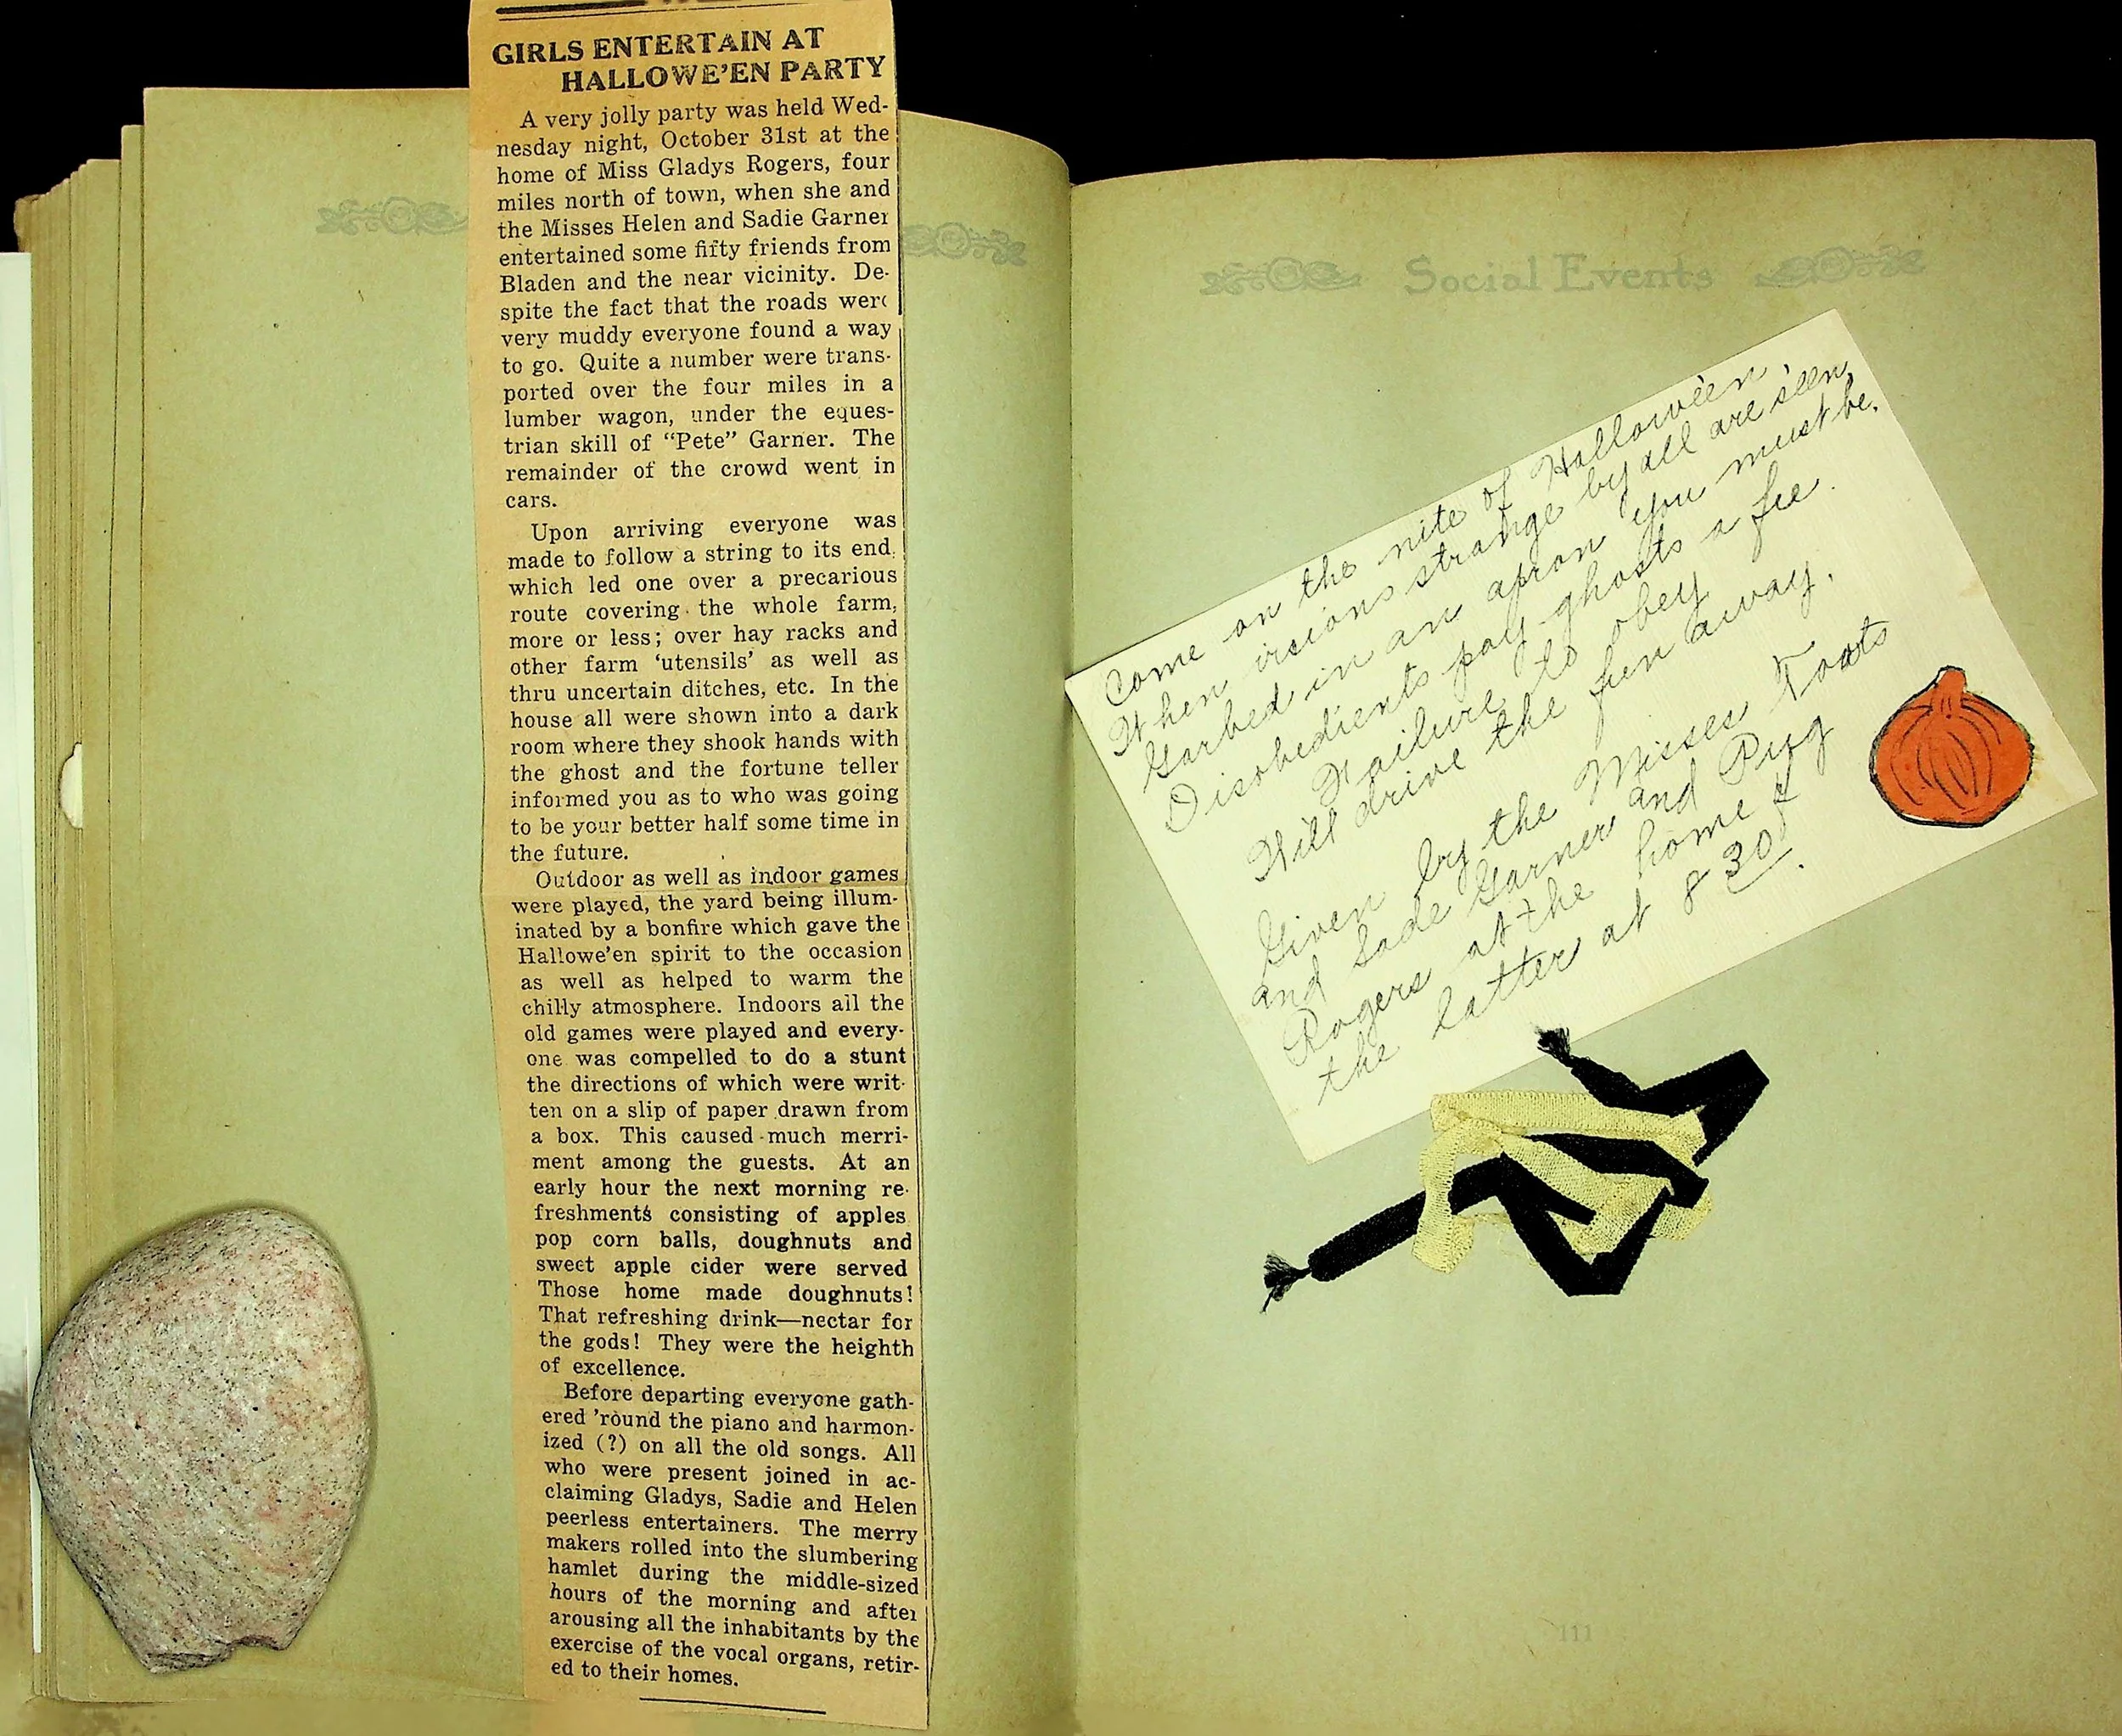 GIRLS ENTERTAIN AT
HALLOWE'EN PARTY
A very jolly party was held Wed-
nesday night, October 31st at the
home of Miss Gladys Rogers, four
miles north of town, when she and
the Misses Helen and Sadie Garner
entertained some fifty friends from
Bladen and the near vicinity. De-
spite the fact that the roads were
very muddy everyone found a way
to go. Quite a number were trans-
ported over the four miles in a
lumber wagon, under the eques-
trian skill of "Pete" Garner. The
remainder of the crowd went in
cars.
Upon arriving everyone was
made to follow a string to its end,
which led one over a precarious
route covering the whole farm,
more or less; over hay racks and
other farm 'utensils' as well as
thru uncertain ditches, etc. In the
house all were shown into a dark
room where they shook hands with
the ghost and the fortune teller
informed you as to who was going
to be your better half some time in
the future.
Outdoor as well as indoor games
were played, the yard being illum-
inated by a bonfire which gave the
Hallowe'en spirit to the occasion
as well as helped to warm the
chilly atmosphere. Indoors all the
old games were played and every-
one was compelled to do a stunt
the directions of which were writ-
ten on a slip of paper drawn from
a box. This caused much merri-
ment among the guests. At an
early hour the next morning re-
freshments consisting of apples
pop corn balls, doughnuts and
sweet apple cider were served
Those home made doughnuts!
That refreshing drink—nectar for
the gods! They were the heighth
of excellence.
Before departing everyone gath-
ered 'round the piano and harmon-
ized (?) on all the old songs. All
who were present joined in ac-
claiming Gladys, Sadie and Helen
peerless entertainers. The merry
makers rolled into the slumbering
hamlet during the middle-sized
hours of the morning and after
arousing all the inhabitants by the
exercise of the vocal organs, retir-
ed to their homes.
Social Events
Come on the nite of Hallowe'en,
When visions strange by all are seen,
Garbed in an apron you must be.
Disobedients pay ghosts a fee.
Failure to obey
Will drive the fun away.
Given by the Misses Toots
and Sade Garner and Pug
Rogers at the home of
the latter at 8 30.
111